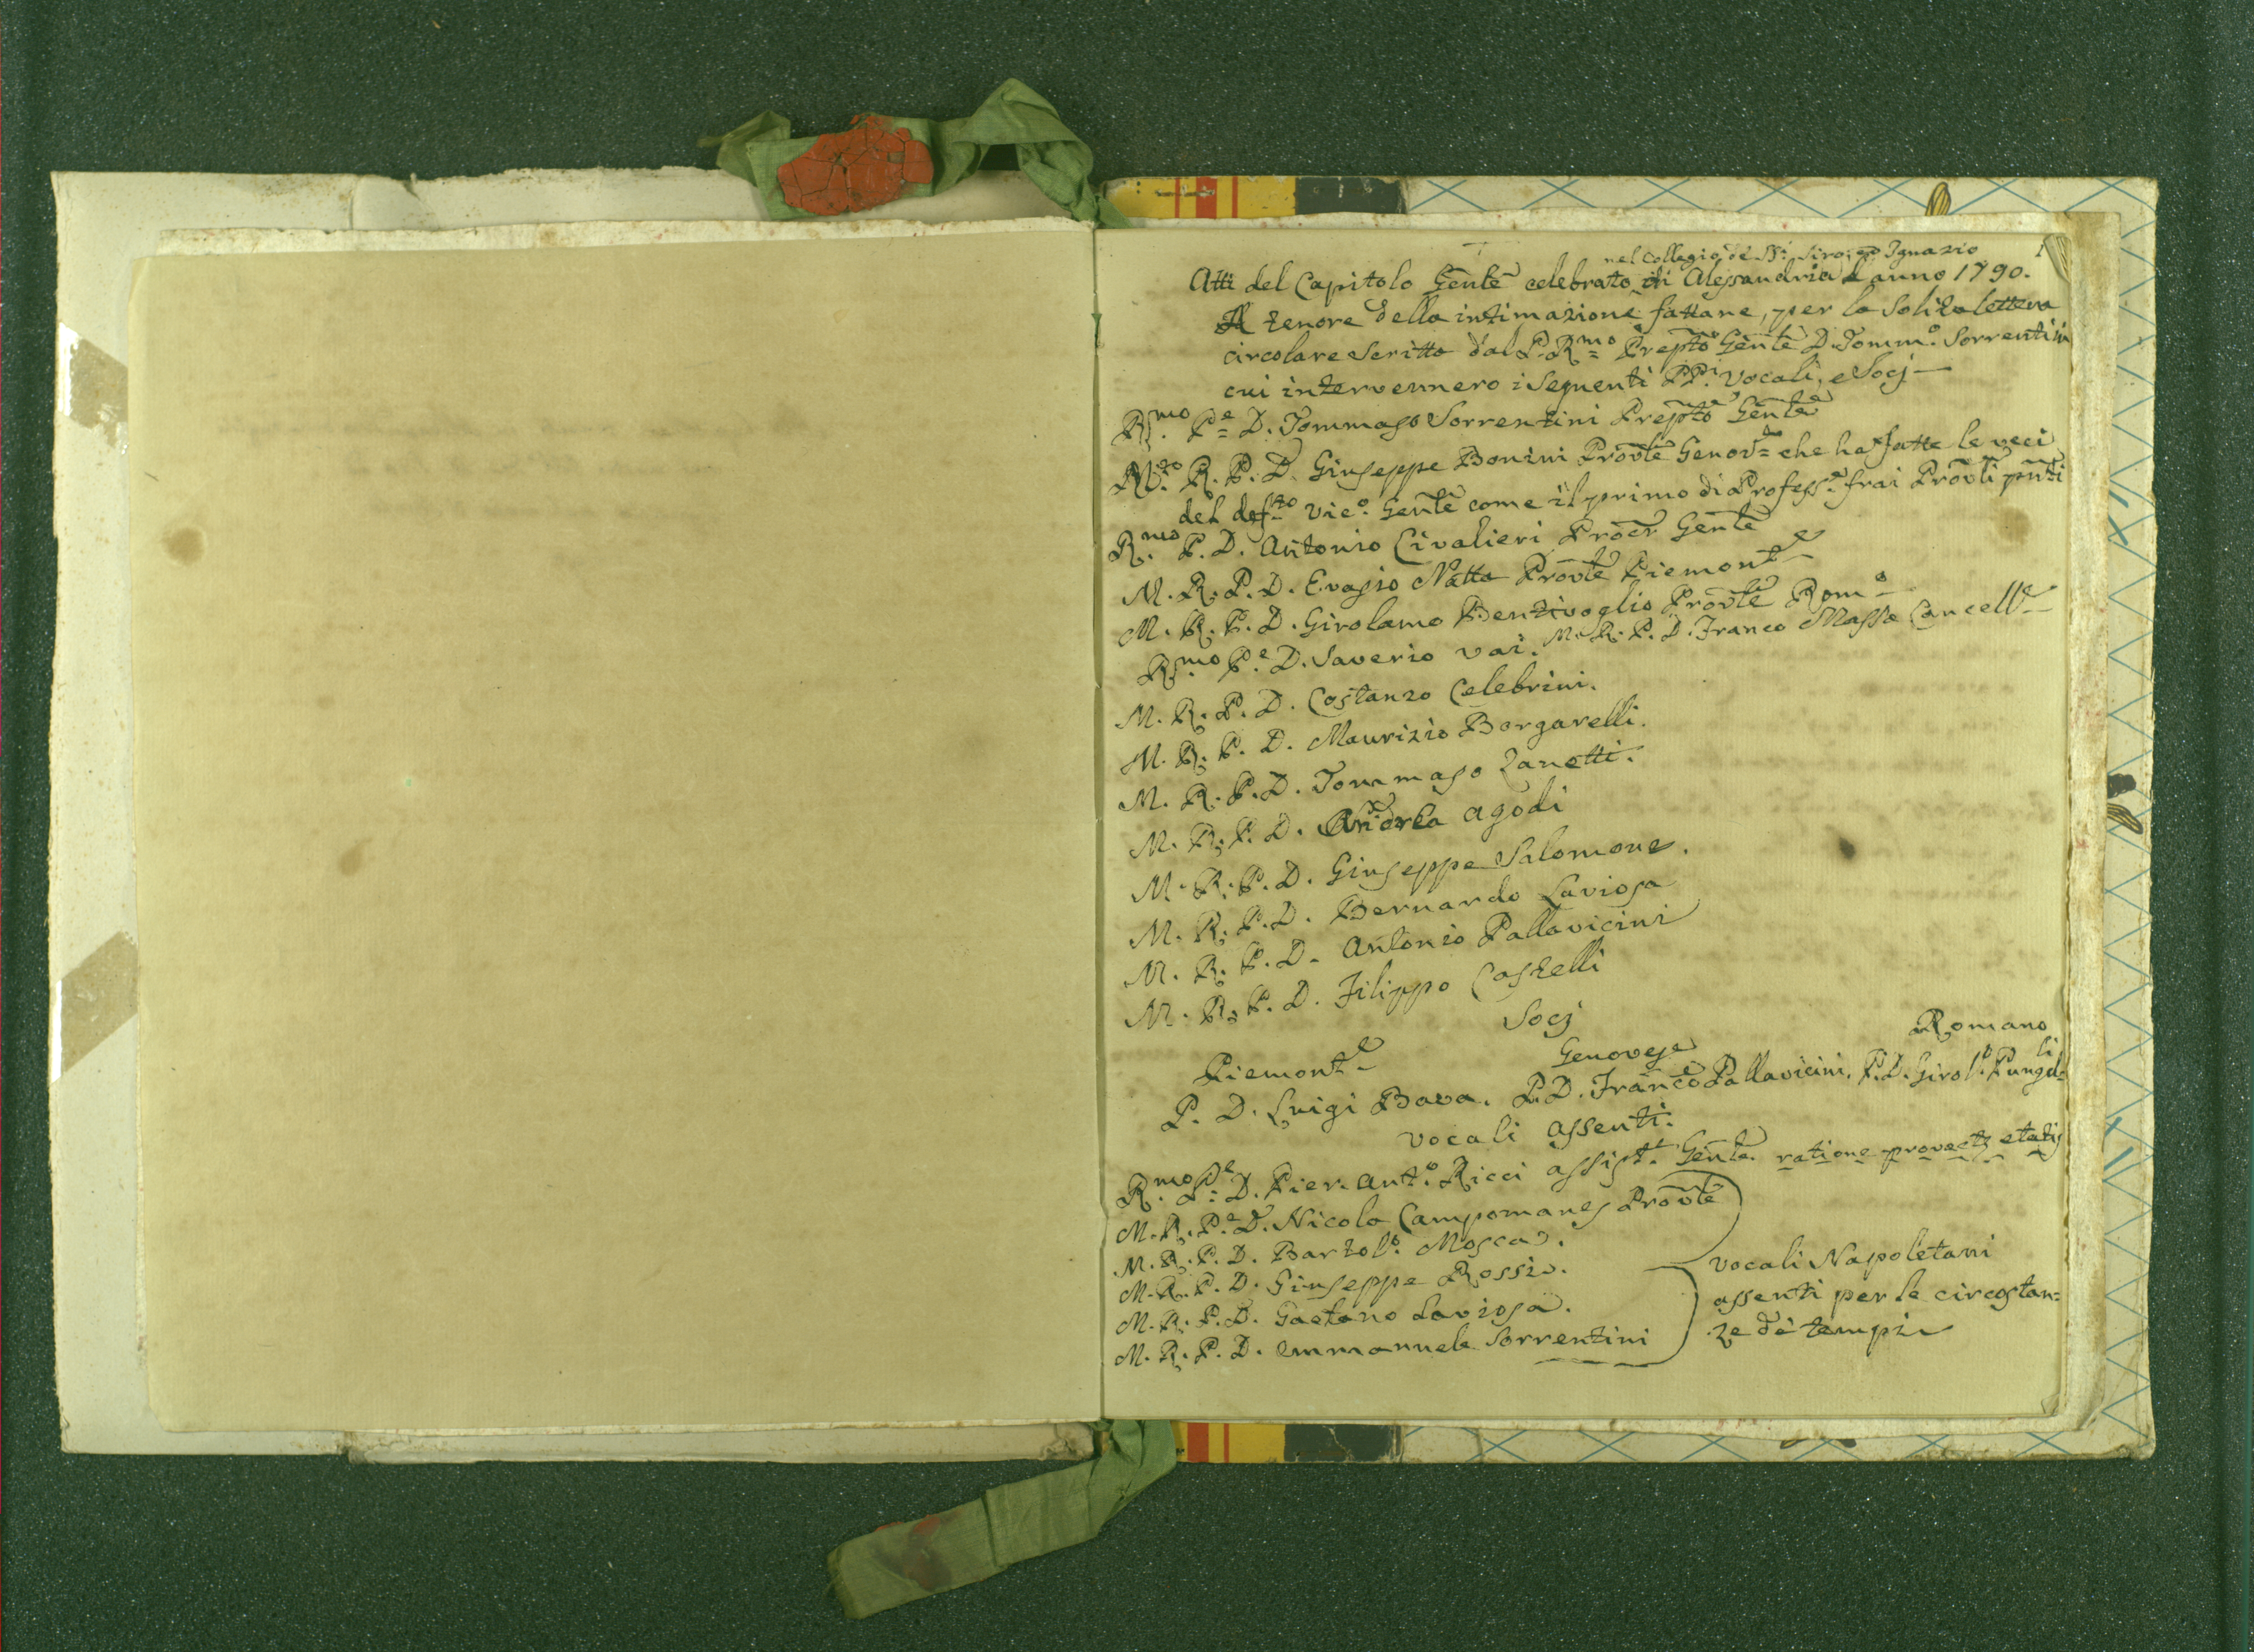 nel Collegio de SS.i Siro, ed Ignazio
1
Atti del Capitolo Gen̄le celebrato di Alessandria l'anno 1790.
A tenore della intimazione fattane, per la Solita lettera
circolare Scritta dal P. R.mo Prep̄to Gen̄le D. Tomm.o Sorrentini
cui intervennero i Seguenti PP.i Vocali, e Socj
R.mo P.e D. Tommaso Sorrentini Prep̄to Gen̄le
M.to R. P. D. Giuseppe Bonini Prov̄le Genov.e che ha fatte le veci
del def.to Vic.o Gen̄le come il primo di Profess.e frai Prov̄li pn̄ti
R.mo P. D. Antonio Civalieri Proc̄r Gen̄le
M. R. P. D. Evasio Natta Prov̄le Piemont.e
M. R. P. D. Girolamo Bentivoglio Prov̄le Rom.o
R.mo P.e D. Saverio Vai. M. R. P. D. Franco Massa Cancell.e
M. R. P. D. Costanzo Celebrini.
M. R. P. D. Maurizio Borgarelli.
M. R. P. D. Tommaso Zanetti.
M. R. P. D. Andrea Agodi
M. R. P. D. Giuseppe Salomone.
M. R. P. D. Bernardo Laviosa
M. R. P. D. Antonio Pallavicini
M. R. P. D. Filippo Castelli
Socj
Piemont.e Genovese Romano
P. D. Luigi Bava. P. D. Franco Pallavicini. P. D. Girol.o
Vocali Assenti.
R.mo P.e D. Pier. Ant.o Ricci Assist.t Gen̄le ratione provectę etatis
M. R. P.e D. Nicola Campomanes Prov̄le
M. R. P. D. Bartol.o Mosca.
M. R. P. D. Giuseppe Rossi.
M. R. P. D. Gaetano Laviosa.
M. R. P. D. Emmanuele Sorrentini
Vocali Napoletani
assenti per le circostan=
ze de' tempi